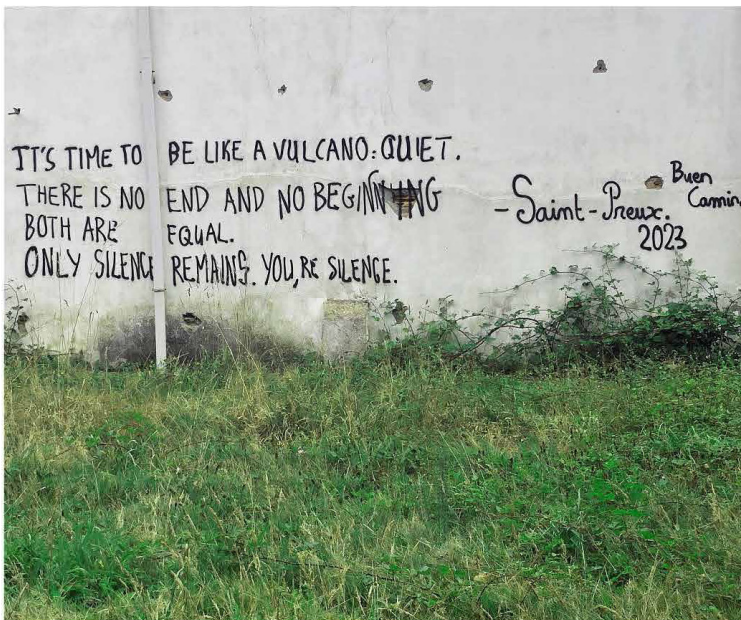 IT'S TIME TO BE LIKE A VULCANO: QUIET.
THERE IS NO END AND NO BEGINNING
BOTH ARE EQUAL.
ONLY SILENCE REMAINS. YOU,RE SILENCE.
-Saint-Preux.
2023
Buen
Camin